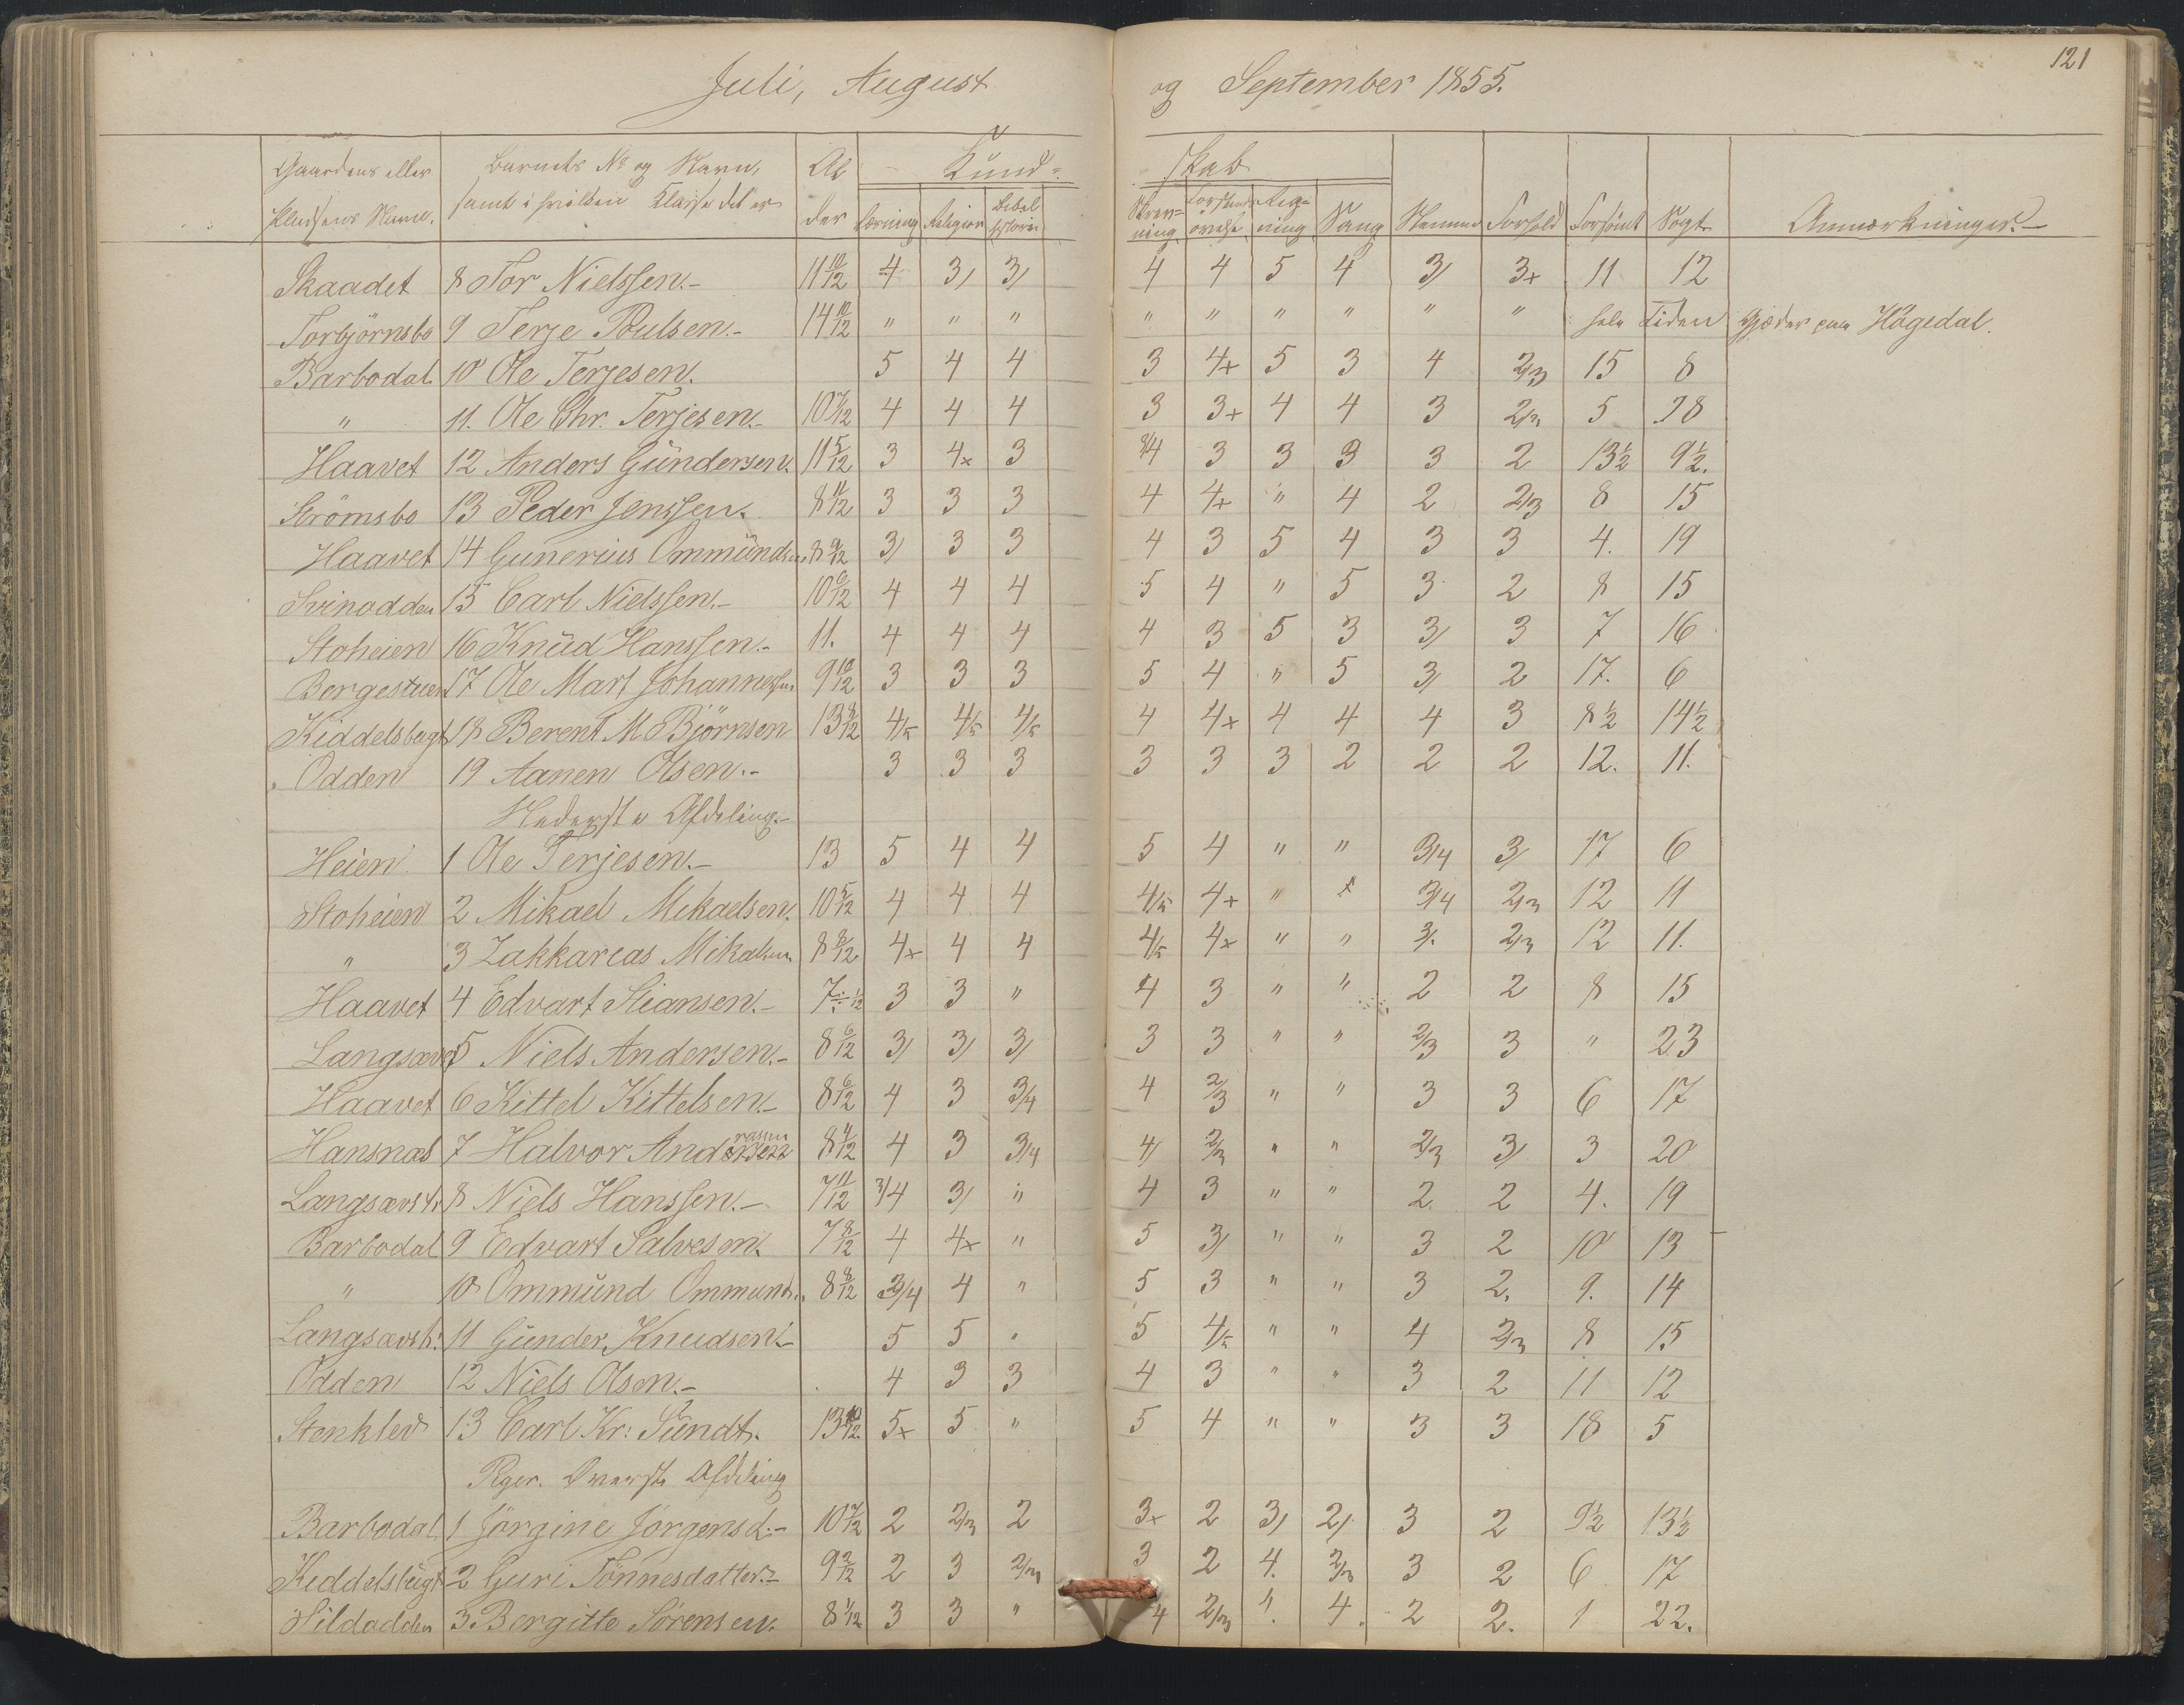 121
Juli, August og September 1855.
Gaardens eller Pladsens Navn. Barnets No og Navn, samt i hvilken Klasse det er Al der Kund= skab Nemme Forhold Forsömt Søgt Anmærkninger.-
Læsning Religion Bibel historie Skriv= ning Forstands övelse Reg= ning Sang
Skaadet 8 Tor Nielssen.- 11 10/12 4 3/ 3/ 4 4 5 4 3/ 3+ 11 12
Torbjörnsbo 9 Terje Poulsen.- 14 10/12 " " " " " " " " " hele Tiden Gjeder paa Högedal.
Barbodal 10 Ole Terjesen. 5 4 4 3 4+ 5 3 4 2/3 15 8
" 11. Ole Chr. Terjesen.- 10 7/12 4 4 4 3 3+ 4 4 3 2/3 5 18
Haavet 12 Anders Gündersen. 11 5/12 3 4x 3 3/4 3 3 3 3 2 13½ 9½.
Strömsbo 13 Peder Jenssen. 8 11/12 3 3 3 4 4+ " 4 2 2/3 8 15
Haavet 14 Gunerius Ommündsen 8 9/12 3/ 3 3 4 3 5 4 3 3 4. 19
Svinodden 15 Carl Nielssen.- 10 6/12 4 4 4 5 4 " 5 3 2 8 15
Stoheien 16 Knüd Hanssen.- 11. 4 4 4 4 3 5 3 3/ 3 7 16
Bergestuen 17 Ole Mart Johannessen 9 10/12 3 3 3 5 4 " 5 3/ 2 17. 6
Kiddelsbugt 18 Berent M Björnsen 13 8/12 4/5 4/5 4/5 4 4x 4 4 4 3 8½ 14½
Odden 19 Aanen Olsen.- 3 3 3 3 3 3 2 2 2 12. 11.
Nederste Afdeling.-
Heien 1 Ole Terjesen.- 13 5 4 4 5 4 " " 3/4 3/ 17 6
Stoheien 2 Mikael Mikaelsen. 10 5/12 4 4 4 4/5 4+ " x 3/4 2/3 12 11
" 3 Zakkarias Mikalsen. 8 8/12 4x 4 4 4/5 4x " " 3/. 2/3 12 11.
Haavet 4 Edvart Stiansen.- 7 ÷ 1/12 3 3 " 4 3 " " 2 2 8 15
Langsæv 5 Niels Andersen.- 8 6/12 3/ 3/ 3/ 3 3 " " 2/3 3 " 23
Haavet 6 Kittel Kittelsen.- 8 6/12 4 3 3/4 4 2/3 " " 3 3 6 17
Hansnæs 7 Halvor Andersen 8 4/12 4 3 3/4 4/ 2/3 " " 2/3 3/ 3 20
Langsævstr 8 Niels Hanssen.- 7 11/12 3/4 3/ " 4 3 " " 2 2 4. 19
Barbodal 9 Edvart Salvesen. 7 8/12 4 4x " 5 3/ " " 3 2 10 13
" 10 Ommünd Ommunds. 8 8/12 3/4 4 " 5 3 " " 3 2. 9. 14
Langsævstr. 11 Günder Knudsen.- 5 5 " 5 4/5 " " 4 2/3 8 15
Odden 12 Niels Olsen.- 4 3 3 4 3 " " 3 2 11 12
Stenklev 13 Carl Kr: Sündt. 13 10/12 5x 5 " 5 4 " " 3 3 18 5
Piger. Överste Afdeling
Barbodal 1 Jörgine Jörgensd.- 10 7/12 2 2/3 2 3x 2 3/ 2/ 3 2 9½ 13½
Kiddelsbügt 2 Guri Tönnesdatter.- 9 2/12 2 3 2/3 3 2 4. 2/3 3 2 6 17
Sildodden 3. Bergitte Sörensen. 8 1/12 3 3 " 4 2/3 " 4. 2 2. 1 22.